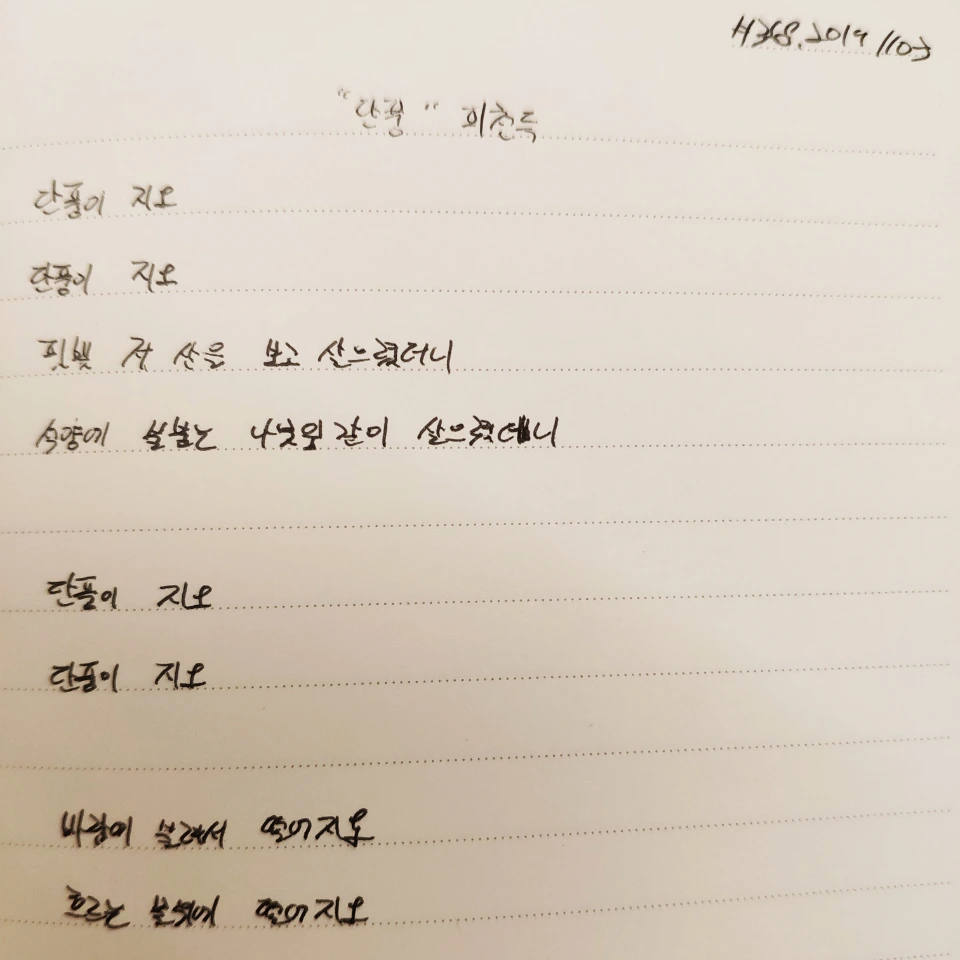 H368. 2019 1103
"단풍" 피천득
단풍이 지오
단풍이 지오
핏빛 저 산을 보고 살으렸더니
석양에 불붙는 나뭇잎 같이 살으렸더니
단풍이 지오
단풍이 지오
바람에 불려서 떨어지오
흐르는 물 위에 떨어지오